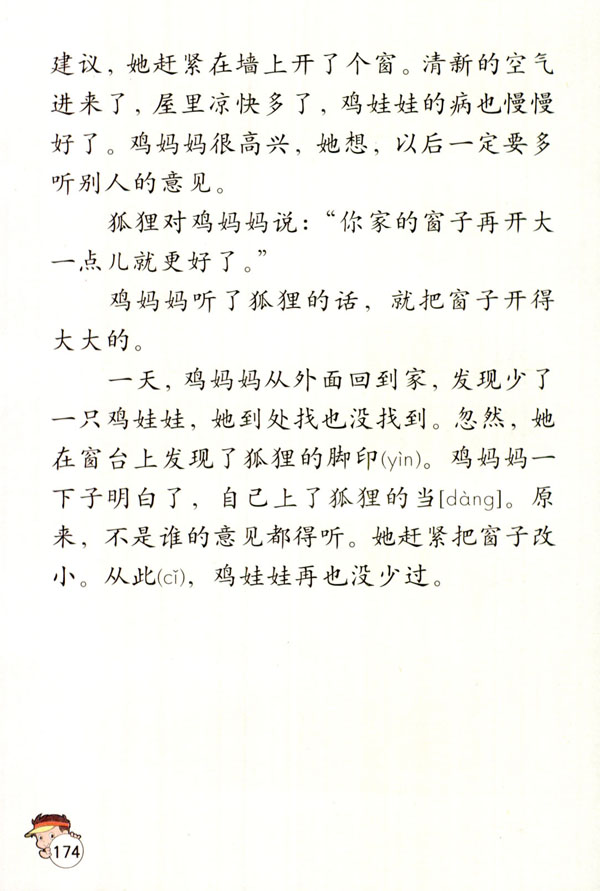 建议，她赶紧在墙上开了个窗。清新的空气
进来了，屋里凉快多了，鸡娃娃的病也慢慢
好了。鸡妈妈很高兴，她想，以后一定要多
听别人的意见。
狐狸对鸡妈妈说：“你家的窗子再开大
一点儿就更好了。”
鸡妈妈听了狐狸的话，就把窗子开得
大大的。
一天，鸡妈妈从外面回到家，发现少了
一只鸡娃娃，她到处找也没找到。忽然，她
在窗台上发现了狐狸的脚印(yìn)。鸡妈妈一
下子明白了，自己上了狐狸的当[dàng]。原
来，不是谁的意见都得听。她赶紧把窗子改
小。从此(cǐ)，鸡娃娃再也没少过。
174